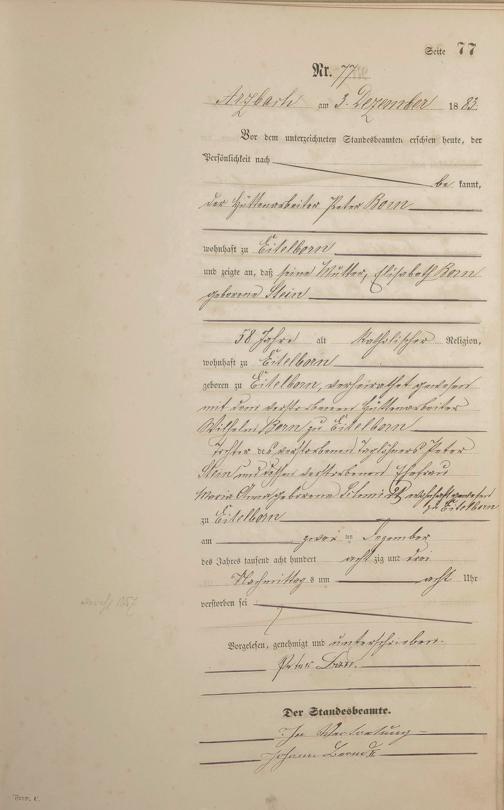 Seite 77
Nr. 77
Arzbach am 3. Dezember 1883.
Vor dem unterzeichneten Standesbeamten erschien heute, der
Persönlichkeit nach
be kannt,
der Hüttenarbeiter Peter Born
wohnhaft zu Eitelborn
und zeigte an, daß seine Mutter, Elisabeth Born
geborene Stein
58 Jahre alt Katholischer Religion,
wohnhaft zu Eitelborn
geboren zu Eitelborn, verheirathet gewesen
mit dem verstorbenen Hüttenarbeiter
Wilhelm Born zu Eitelborn
Tochter des verstorbenen Taglöhners Peter
Stein und dessen verstorbenen Ehefrau
Maria Anna geborene Schmidt wohnhaft gewesen
zu Eitelborn
zu Eitelborn
am zwei ten Dezember
des Jahres tausend acht hundert acht zig und drei
Nachmittag s um acht Uhr
verstorben sei
Vorgelesen, genehmigt und unterschrieben.
Peter Born.
Der Standesbeamte.
In Vertretung
Johann
Form. C.